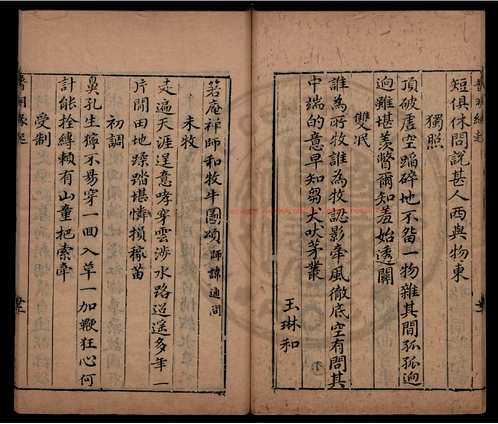 短俱休問説甚人西與物東
獨照
頂破虛空蹋碎地不留一物雜其間孤孤迥
迥難堪羨瞥爾知羞始透關
雙泯
誰為所牧誰為牧認影牽風徹底空有問其
中端的意早知芻犬吠茅叢
玉琳和
箬庵禪師和牧牛圖頌師諱通問
未牧
走遍天涯逞意哮穿雲涉水路迢遥多年一
片閒田地蹂踏堪憐損稼苗
初調
鼻孔生獰不易穿一回入草一加鞭狂心何
計能拴縛賴有山童把索牽
受制